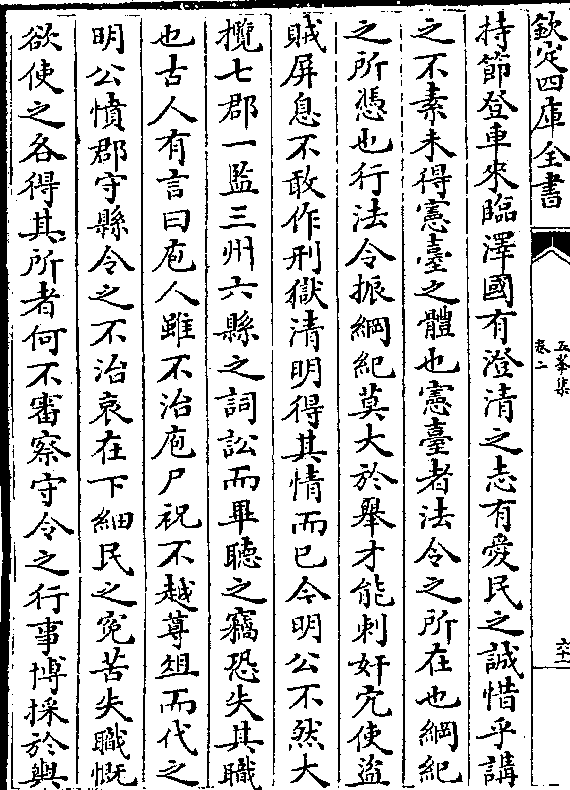 欽定四庫全書
五峯集
卷二
六十一
持節登車來臨澤國有澄清之志有愛民之誠惜乎講
之不素未得憲臺之體也憲臺者法令之所在也綱紀
之所憑也行法令振綱紀莫大於舉才能刺奸宄使盜
賊屏息不敢作刑獄清明得其情而已今明公不然大
攬七郡一監三州六縣之詞訟而畢聽之竊恐失其職
也古人有言曰庖人雖不治庖尸祝不越蓴俎而代之
明公憤郡守縣令之不治哀在下細民之冤苦失職慨
欲使之各得其所者何不審察守令之行事博採於輿